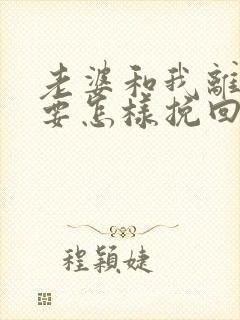 老婆和我離
要怎樣挽回
程穎婕